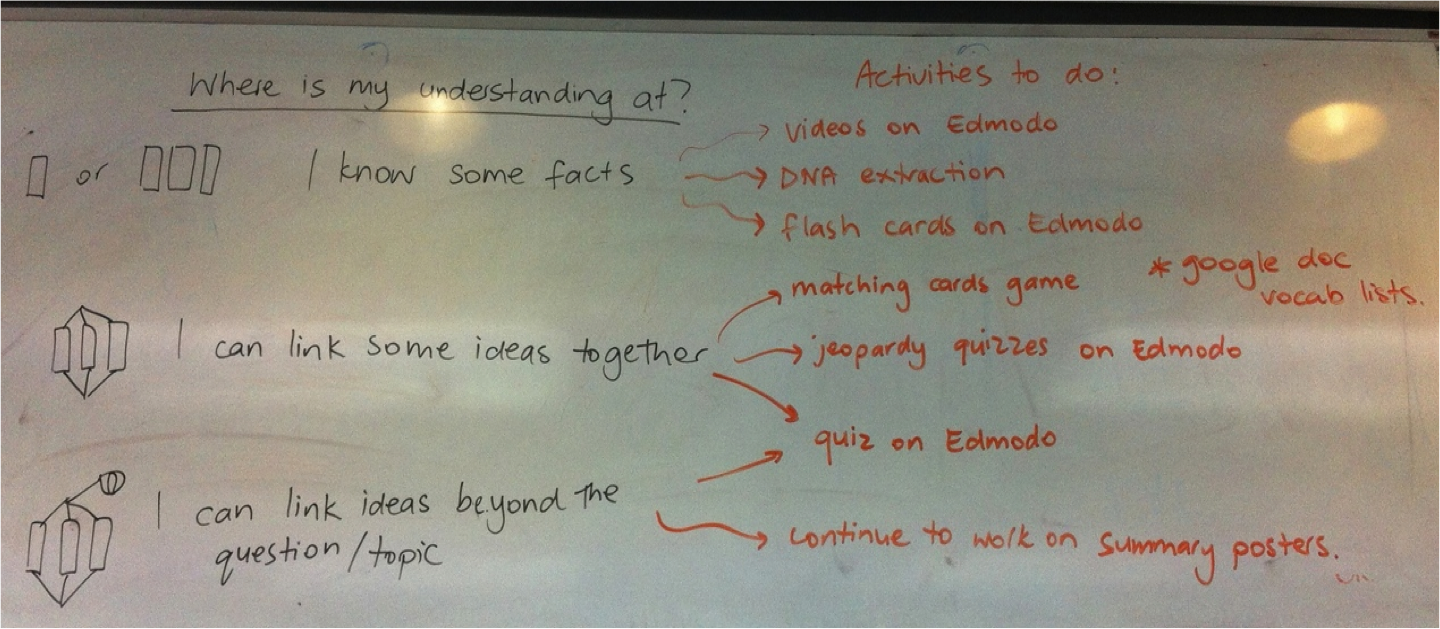 Where is my understanding at?
or I know some facts
I can link some ideas together
I can link ideas beyond the
question/topic
Activities to do:
videos on Edmodo
DNA extraction
flash cards on Edmodo
matching cards game
* google doc
vocab lists.
jeopardy quizzes on Edmodo
quiz on Edmodo
continue to work on summary posters.